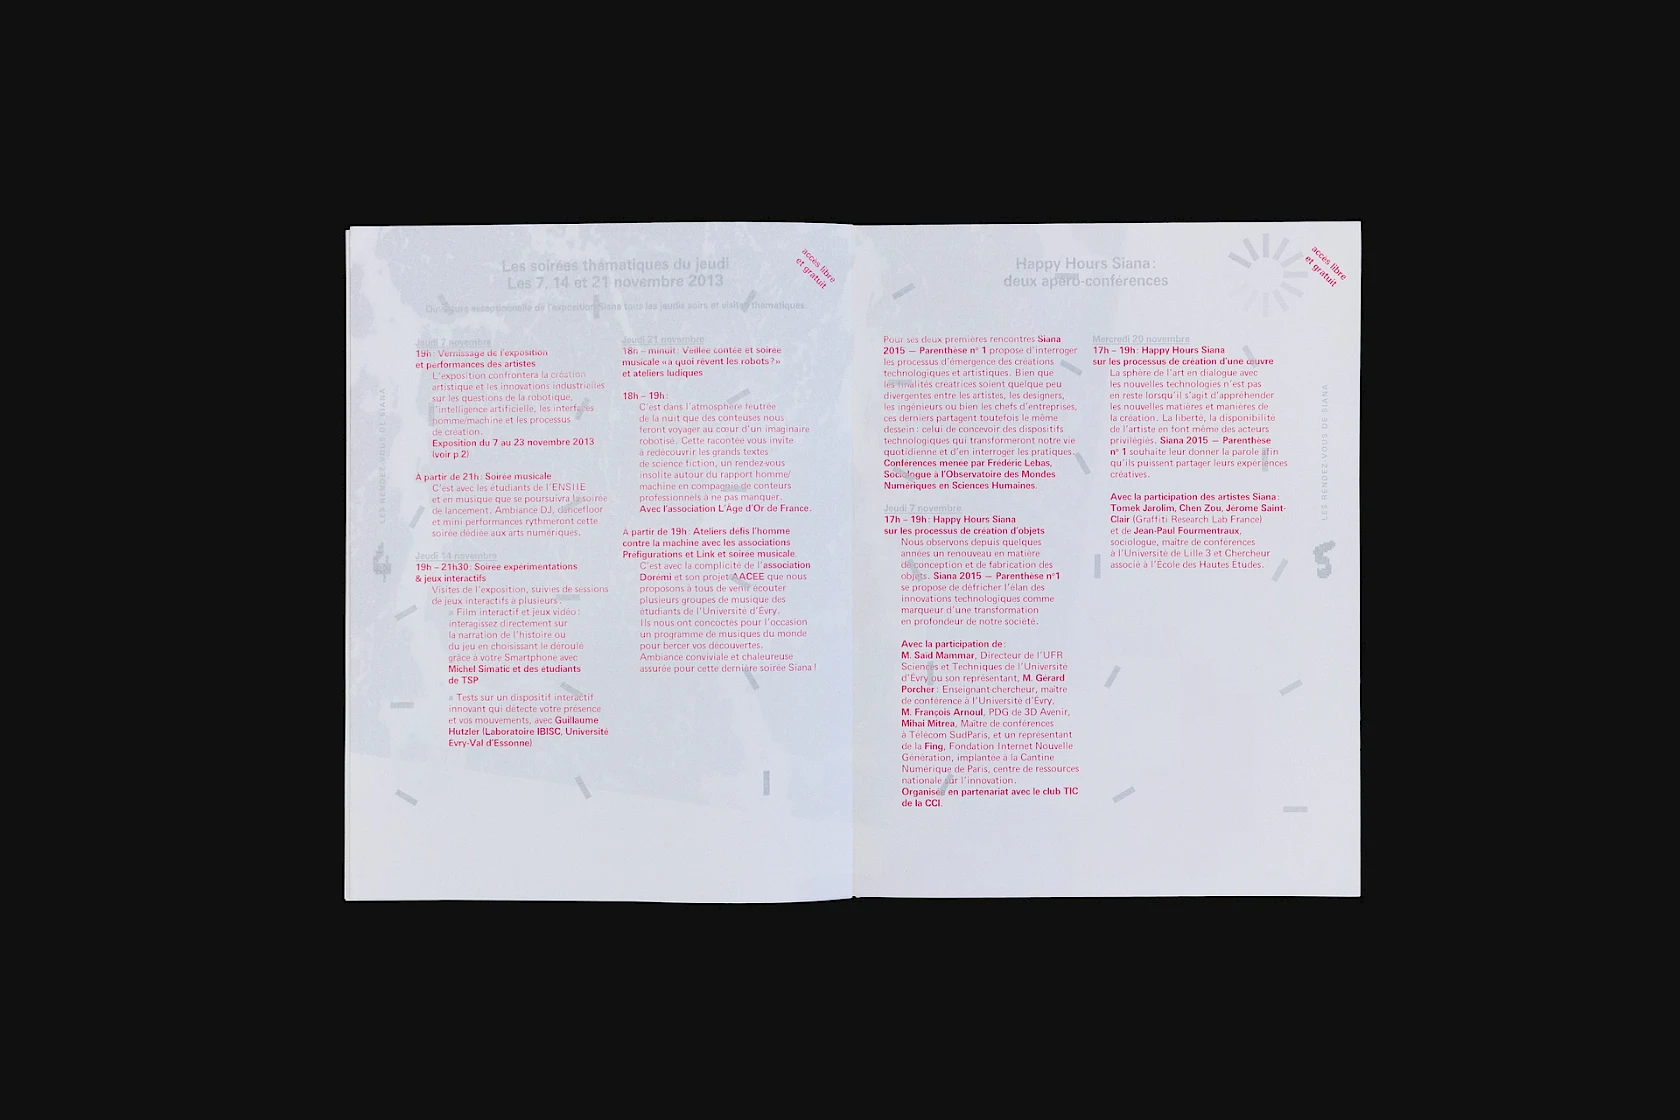 Les soirées thématiques du jeudi
Les 7, 14 et 21 novembre 2013
accès libre
et gratuit
Ouverture exceptionnelle de l'exposition Siana tous les jeudis soirs et visites thématiques.
LES RENDEZ-VOUS DE SIANA
4
Jeudi 7 novembre
19h : Vernissage de l'exposition
et performances des artistes
L'exposition confrontera la création
artistique et les innovations industrielles
sur les questions de la robotique,
l'intelligence artificielle, les interfaces
homme/machine et les processus
de création.
Exposition du 7 au 23 novembre 2013
(voir p.2)
À partir de 21h : Soirée musicale
C'est avec les étudiants de l'ENSIIE
et en musique que se poursuivra la soirée
de lancement. Ambiance DJ, dancefloor
et mini performances rythmeront cette
soirée dédiée aux arts numériques.
Jeudi 14 novembre
19h – 21h30 : Soirée expérimentations
& jeux interactifs
Visites de l'exposition, suivies de sessions
de jeux interactifs à plusieurs :
Film interactif et jeux vidéo :
interagissez directement sur
la narration de l'histoire ou
du jeu en choisissant le déroulé
grâce à votre Smartphone avec
Michel Simatic et des étudiants
de TSP
Tests sur un dispositif interactif
innovant qui détecte votre présence
et vos mouvements, avec Guillaume
Hutzler (Laboratoire IBISC, Université
Évry-Val d'Essonne)
Jeudi 21 novembre
18h – minuit : Veillée contée et soirée
musicale « à quoi rêvent les robots ? »
et ateliers ludiques
18h – 19h :
C'est dans l'atmosphère feutrée
de la nuit que des conteuses nous
feront voyager au cœur d'un imaginaire
robotisé. Cette racontée vous invite
à redécouvrir les grands textes
de science fiction, un rendez-vous
insolite autour du rapport homme/
machine en compagnie de conteurs
professionnels à ne pas manquer.
Avec l'association L'Âge d'Or de France.
À partir de 19h : Ateliers défis l'homme
contre la machine avec les associations
Préfigurations et Link et soirée musicale.
C'est avec la complicité de l'association
Dorémi et son projet AACEE que nous
proposons à tous de venir écouter
plusieurs groupes de musique des
étudiants de l'Université d'Évry.
Ils nous ont concoctés pour l'occasion
un programme de musiques du monde
pour bercer vos découvertes.
Ambiance conviviale et chaleureuse
assurée pour cette dernière soirée Siana !
Happy Hours Siana :
deux apéro-conférences
accès libre
et gratuit
Pour ses deux premières rencontres Siana
2015 — Parenthèse n° 1 propose d'interroger
les processus d'émergence des créations
technologiques et artistiques. Bien que
les finalités créatrices soient quelque peu
divergentes entre les artistes, les designers,
les ingénieurs ou bien les chefs d'entreprises,
ces derniers partagent toutefois le même
dessein : celui de concevoir des dispositifs
technologiques qui transformeront notre vie
quotidienne et d'en interroger les pratiques.
Conférences menée par Frédéric Lebas,
Sociologue à l'Observatoire des Mondes
Numériques en Sciences Humaines.
Jeudi 7 novembre
17h – 19h : Happy Hours Siana
sur les processus de création d'objets
Nous observons depuis quelques
années un renouveau en matière
de conception et de fabrication des
objets. Siana 2015 — Parenthèse n°1
se propose de défricher l'élan des
innovations technologiques comme
marqueur d'une transformation
en profondeur de notre société.
Avec la participation de :
M. Saïd Mammar, Directeur de l'UFR
Sciences et Techniques de l'Université
d'Évry ou son représentant, M. Gérard
Porcher : Enseignant-chercheur, maître
de conférence à l'Université d'Évry,
M. François Arnoul, PDG de 3D Avenir,
Mihai Mitrea, Maître de conférences
à Télécom SudParis, et un représentant
de la Fing, Fondation Internet Nouvelle
Génération, implantée à la Cantine
Numérique de Paris, centre de ressources
nationale sur l'innovation.
Organisée en partenariat avec le club TIC
de la CCI.
Mercredi 20 novembre
17h – 19h : Happy Hours Siana
sur les processus de création d'une œuvre
La sphère de l'art en dialogue avec
les nouvelles technologies n'est pas
en reste lorsqu'il s'agit d'appréhender
les nouvelles matières et manières de
la création. La liberté, la disponibilité
de l'artiste en font même des acteurs
privilégiés. Siana 2015 — Parenthèse
n° 1 souhaite leur donner la parole afin
qu'ils puissent partager leurs expériences
créatives.
Avec la participation des artistes Siana :
Tomek Jarolim, Chen Zou, Jérome Saint-
Clair (Graffiti Research Lab France)
et de Jean-Paul Fourmentraux,
sociologue, maître de conférences
à l'Université de Lille 3 et Chercheur
associé à l'École des Hautes Études.
LES RENDEZ-VOUS DE SIANA
5